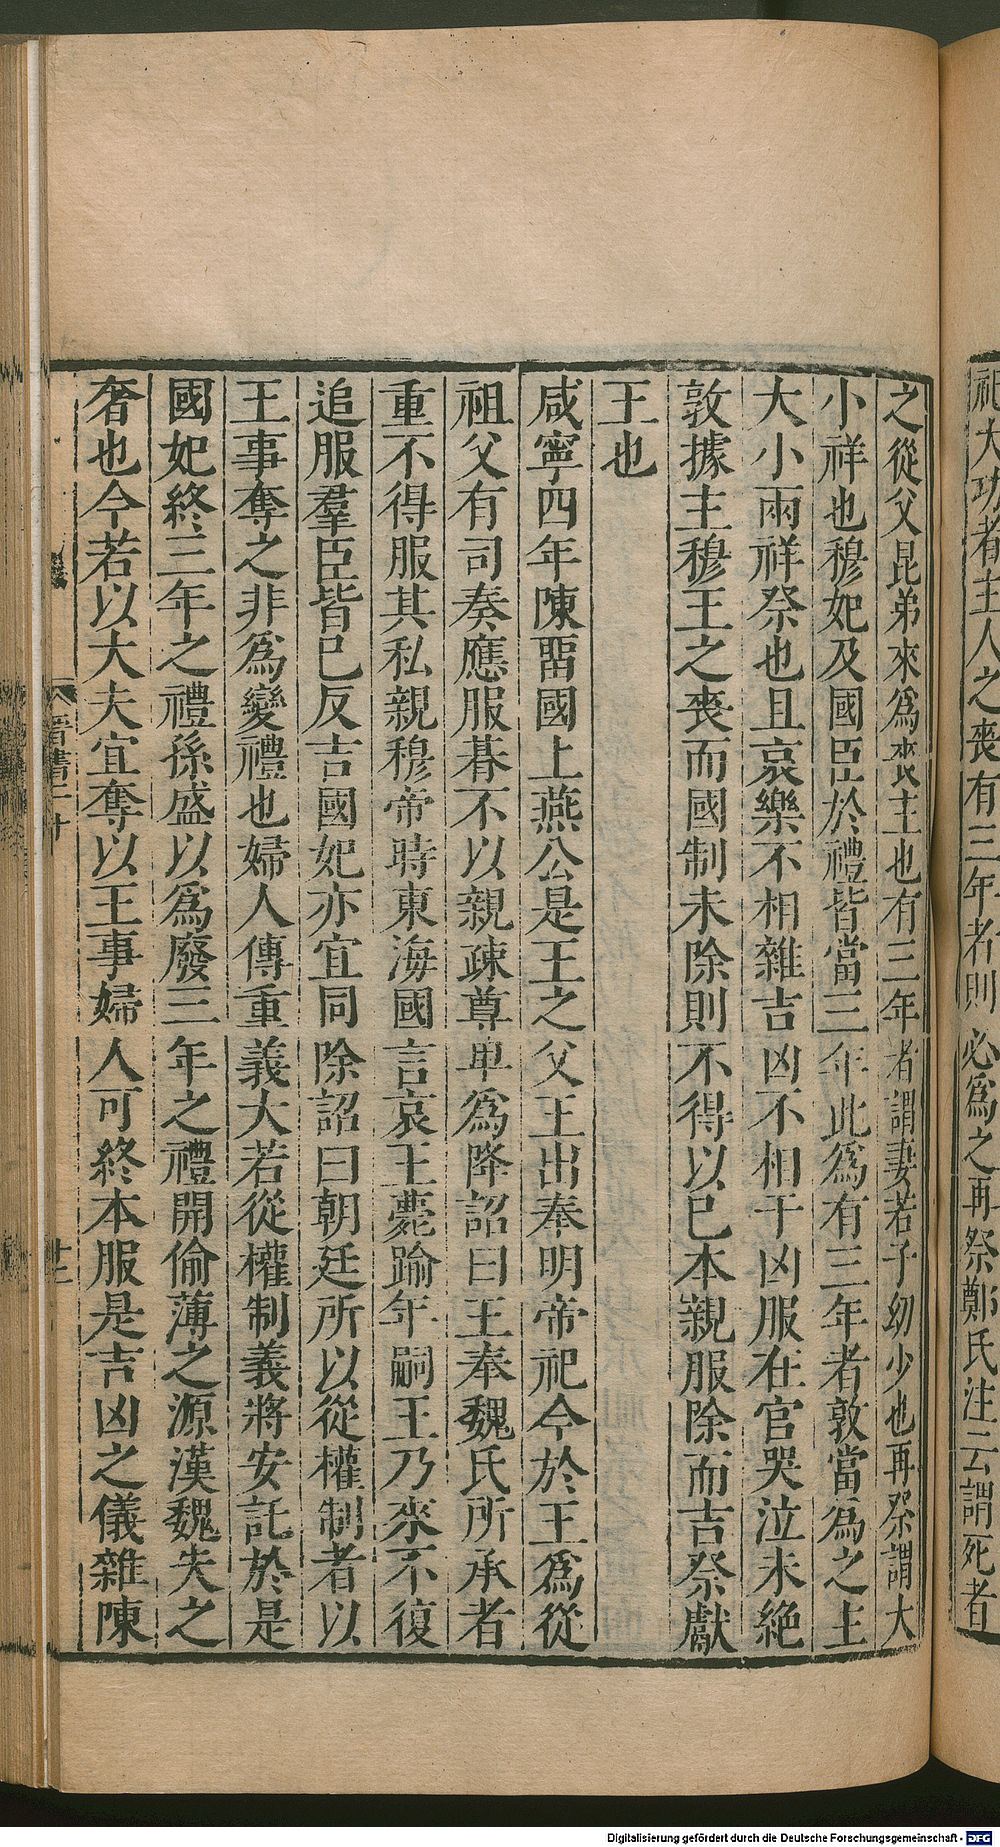 祖大功者主人之喪有三年者則必爲之再祭鄭氏注云謂死者
之從父昆弟來爲喪主也有三年者謂妻若子幼少也再祭謂大
小祥也穆妃及國臣於禮皆當三年此爲有三年者敦當爲之主
大小兩祥祭也且哀樂不相雜吉凶不相干凶服在宮哭泣未絶
敦據主穆王之喪而國制未除則不得以已本親服除而吉祭獻
王也
咸寧四年陳留國上燕公是王之父王出奉明帝祀今於王爲從
祖父有司奏應服朞不以親疎尊卑爲降詔曰王奉魏氏所承者
重不得服其私親穆帝時東海國言哀王薨踰年嗣王乃來不復
追服羣臣皆已反吉國妃亦宜同除詔曰朝廷所以從權制者以
王事奪之非爲變禮也婦人傳重義大若從權制義將安託於是
國妃終三年之禮孫盛以爲廢三年之禮開偷薄之源漢魏失之
奢也今若以大夫宜奪以王事婦人可終本服是吉凶之儀雜陳
晉書二十
十三
Digitalisierung gefördert durch die Deutsche Forschungsgemeinschaft - DFG